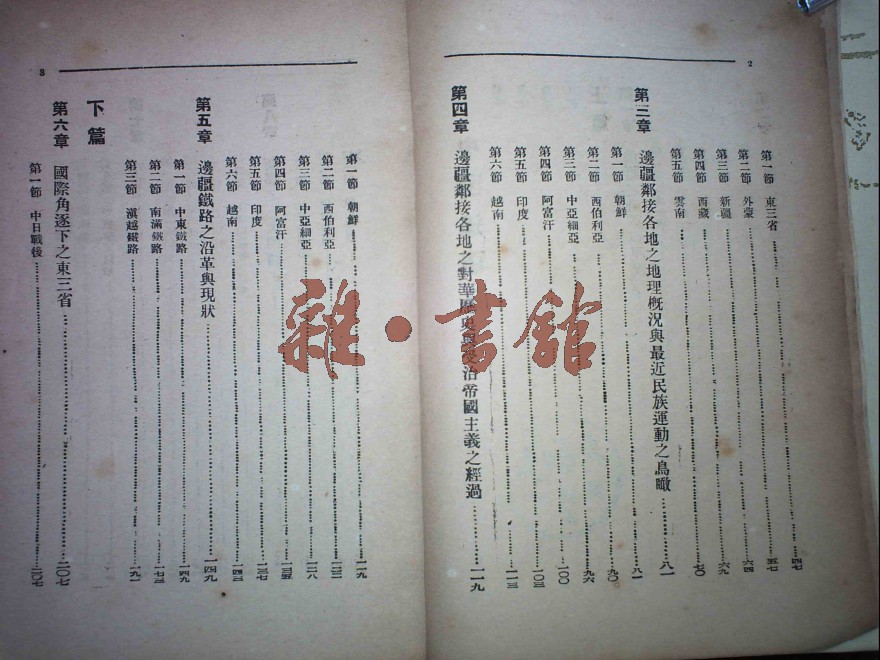 2
第一節 東三省 四七
第二節 外蒙 五七
第三節 新疆 六四
第四節 西藏 六九
第五節 雲南 七〇
第三章 邊疆鄰接各地之地理概況與最近民族運動之鳥瞰 八一
第一節 朝鮮 八一
第二節 西伯利亞 九〇
第三節 中亞細亞 九六
第四節 阿富汗 一〇〇
第五節 印度 一〇三
第六節 越南 一一三
第四章 邊疆鄰接各地之對華 治帝國主義之經過 一一九
3
第一節 朝鮮 一一九
第二節 西伯利亞
第三節 中亞細亞 一二八
第四節 阿富汗 一三五
第五節 印度 一三七
第六節 越南 一四三
第五章 邊疆鐵路之沿革與現狀 一四九
第一節 中東鐵路 一四九
第二節 南滿鐵路 一七三
第三節 滇越鐵路 一九一
下篇
第六章 國際角逐下之東三省 二〇七
第一節 中日戰後 二〇七
雜·書館